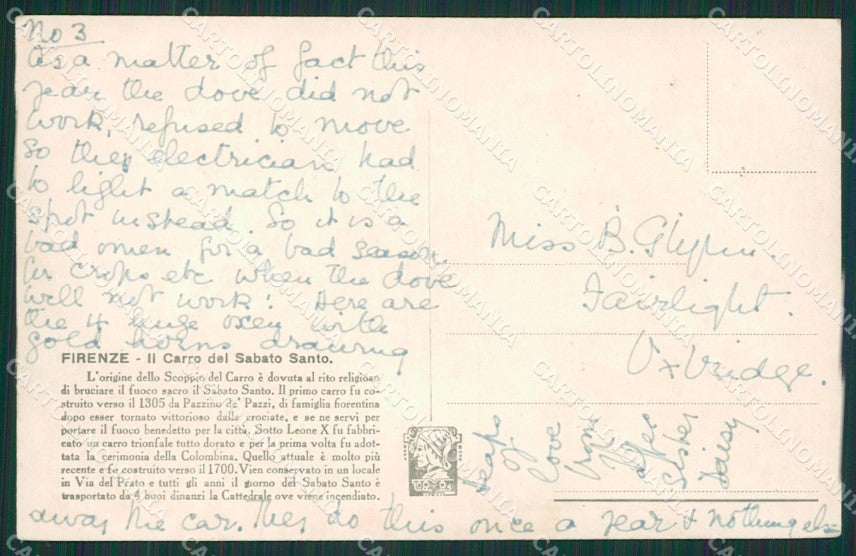 No 3
As a matter of fact this
year the dove did not
work, refused to move
so they electrician had
to light a match to the
spot instead. So it is a
bad omen for a bad season
for crops etc when the dove
will not work! Here are
the 4 huge oxen with
gold horns drawing
FIRENZE - Il Carro del Sabato Santo.
L'origine dello Scoppio del Carro è dovuta al rito religioso
di bruciare il fuoco sacro il Sabato Santo. Il primo carro fu co-
struito verso il 1305 da Pazzino de' Pazzi, di famiglia fiorentina
dopo esser tornato vittorioso dalle crociate, e se ne servi per
portare il fuoco benedetto per la città. Sotto Leone X fu fabbri-
cato un carro trionfale tutto dorato e per la prima volta fu adot-
tata la cerimonia della Colombina. Quello attuale è molto più
recente e fu costruito verso il 1700. Vien conservato in un locale
in Via del Prato e tutti gli anni il giorno del Sabato Santo è
trasportato da 4 buoi dinanzi la Cattedrale ove viene incendiato.
away the car. They do this once a year & nothing else
Miss B. Glynn.
Fairlight.
Uxbridge.
Heaps
of
love
from
Sister
Daisy
CARTOLINOMANIA